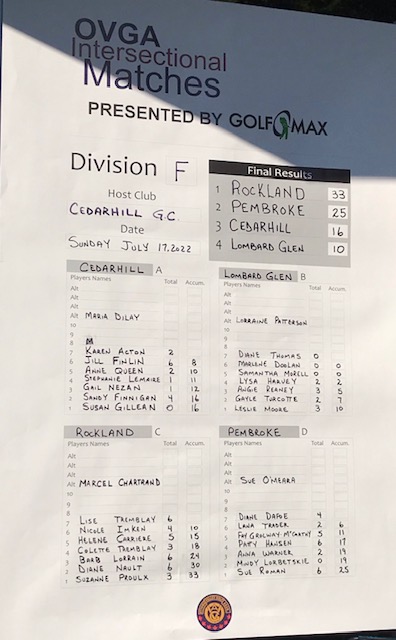 OVGA
Intersectional
Matches
PRESENTED BY GOLFOMAX
Division F
Host Club
CEDARHILL G.C.
Date
SUNDAY JULY 17, 2022
Final Results
1 ROCKLAND 33
2 PEMBROKE 25
3 CEDARHILL 16
4 LOMBARD GLEN 10
CEDARHILL A
Players Names Total Accum.
Alt
Alt
Alt
Alt MARIA DILAY
10
9
8
7 KAREN ACTON 2
6 JILL FINLIN 6 8
5 ANNE QUEEN 2 10
4 STEPHANIE LEMAIRE 1 11
3 GAIL NEZAN 1 12
2 SANDY FINNIGAN 4 16
1 SUSAN GILLEAN 0 16
LOMBARD GLEN B
Players Names Total Accum.
Alt
Alt
Alt
Alt LORRAINE PATTERSON
10
9
8
7 DIANE THOMAS 0
6 MARLENE DOOLAN 0 0
5 SAMANTHA MORELL 0 0
4 LYSA HARVEY 2 2
3 ANGIE REANEY 3 5
2 GAYLE TURCOTTE 2 7
1 LESLIE MOORE 3 10
ROCKLAND C
Players Names Total Accum.
Alt
Alt
Alt MARCEL CHARTRAND
10
9
8
7 LISE TREMBLAY 6
6 NICOLE IMKEN 4 10
5 HELENE CARRIERE 5 15
4 COLETTE TREMBLAY 3 18
3 BARB LORRAIN 6 24
2 DIANE NAULT 6 30
1 SUZANNE PROULX 3 33
PEMBROKE D
Players Names Total Accum.
Alt
Alt
Alt SUE O'MEARA
10
9
8
7 DIANE DAFOE 4
6 LANA TRADER 2 6
5 FAY GROLWAY McCARTHY 5 11
4 PATY HANSEN 6 17
3 ANNA WARNER 2 19
2 MINDY LORBETSKIE 0 19
1 SUE ROMAN 6 25